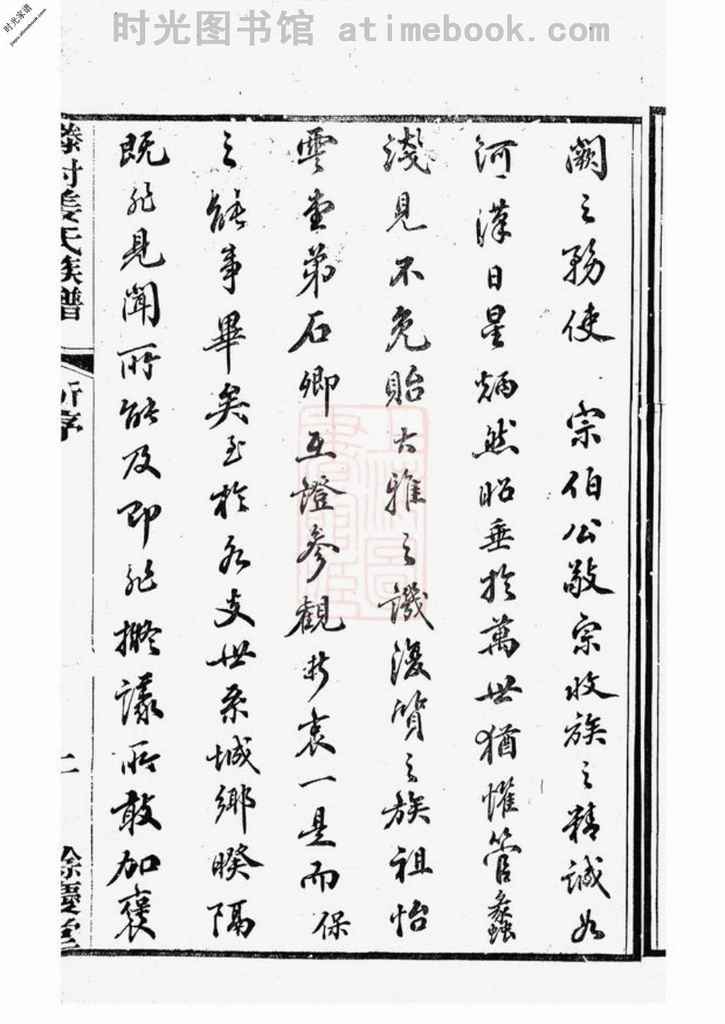 时光图书馆 atimebook.com
时光家谱
闕之務使 宗伯公敬宗收族之精誠如
河漢日星炳然昭垂於萬世猶懼管蠡
淺見不免貽大雅之譏復質之族祖怡
雲堂弟石卿互證參觀折衷一是而保
之能事畢矣至於各支世系城鄉暌隔
既非見聞所能及即非擬議所敢加襃
姜氏族譜
新序
二
餘慶堂